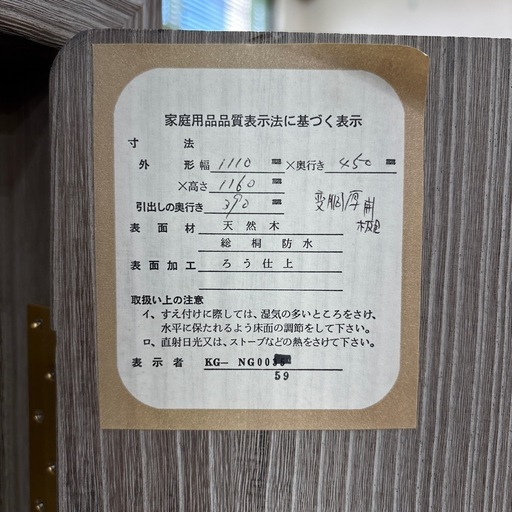 家庭用品品質表示法に基づく表示
寸法
外形 幅 1110 ㎜ ×奥行き 450 ㎜
×高さ 1160 ㎜
引出しの奥行き 390 ㎜
表面材 天然木
総桐防水
表面加工 ろう仕上
取扱い上の注意
イ、すえ付けに際しては、湿気の多いところをさけ、
水平に保たれるよう床面の調節をして下さい。
ロ、直射日光又は、ストーブなどの熱をさけて下さい。
表示者 KG― NG00
59